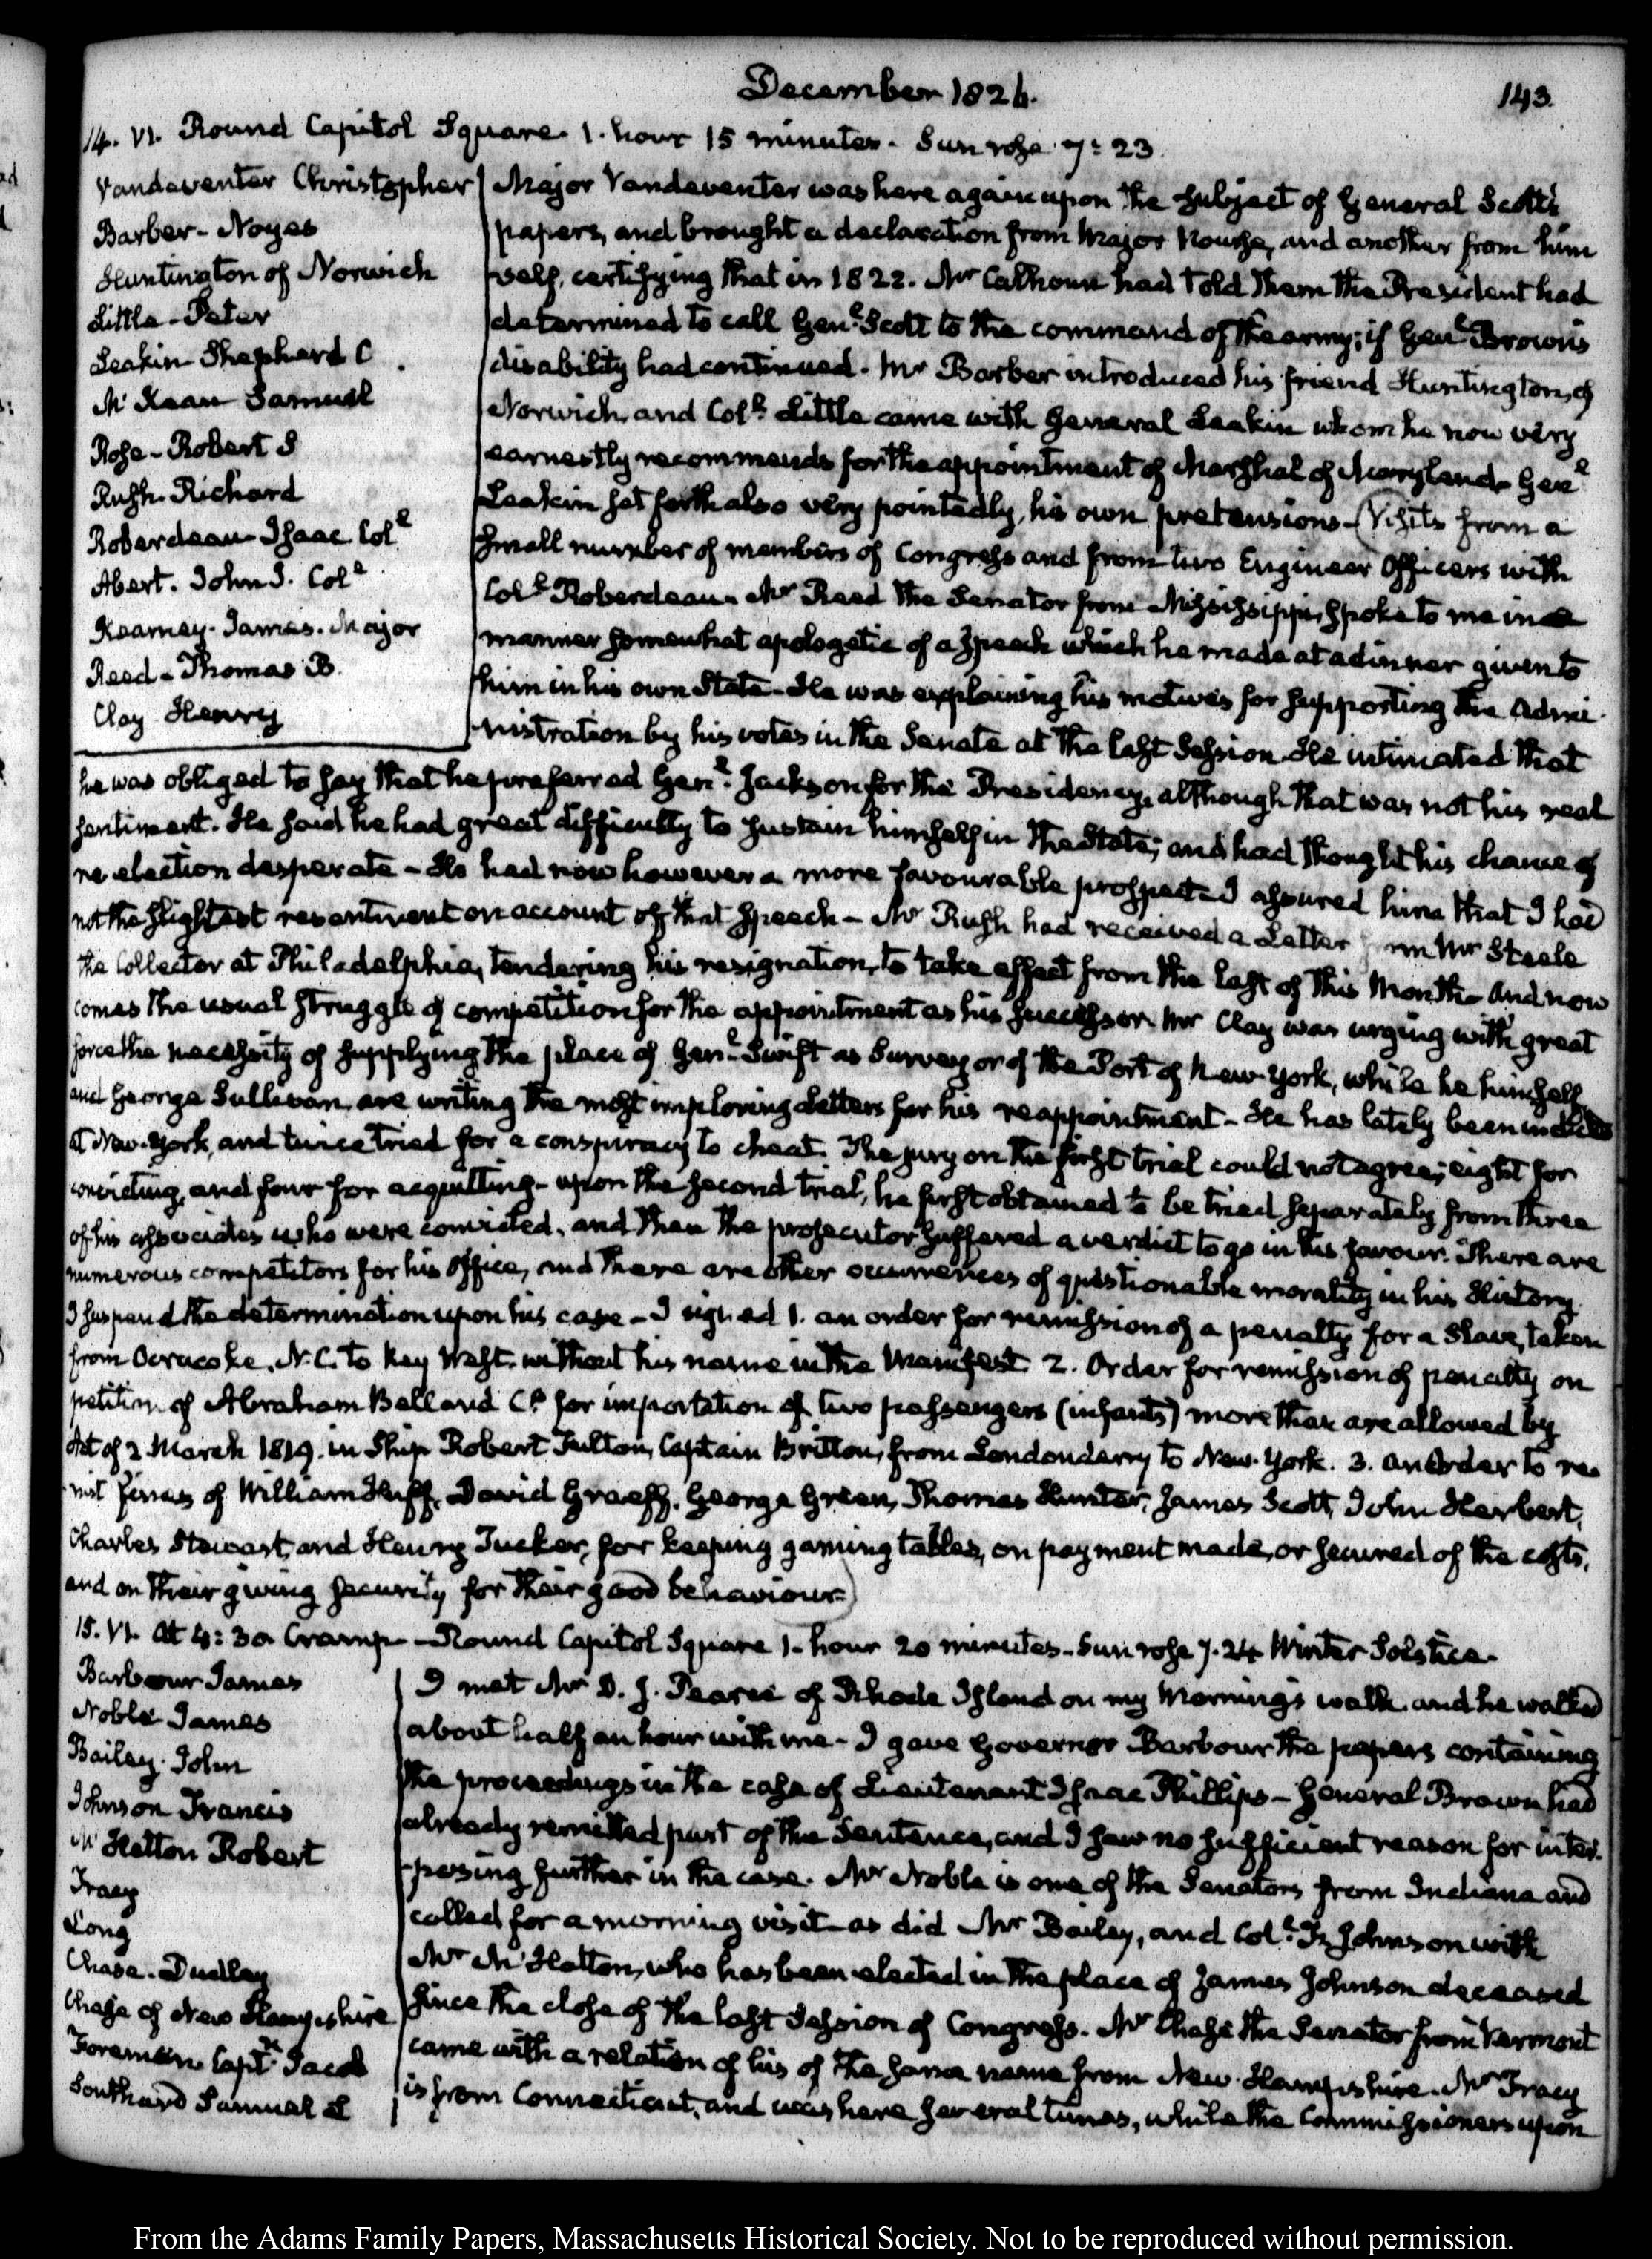 December 1826.
143.
14. VI. Round Capitol Square. 1. hour 15 minutes. Sun rose 7:23
Vandeventer Christopher
Barber - Noyes
Huntington of Norwich
Little - Peter
Leakin Shephard C
Mc Kean Samuel
Rose - Robert S
Rush. Richard
Roberdeau - Isaac Coll
Abert. John J. Coll
Kearney. James. Major
Reed - Thomas B.
Clay Henry
Major Vandeventer was here again upon the subject of General Scott's
papers, and brought a declaration from Major Nourse, and another from him
self, certifying that in 1822. Mr Calhoun had told them the President had
determined to call Genl Scott to the command of the army; if Genl Brown's
disability had continued. Mr Barber introduced his friend Huntington, of
Norwich and Coll Little came with General Leakin whom he now very
earnestly recommends for the appointment of Marshal of Maryland. Genl
Leakin set forth also very pointedly, his own pretensions - (Visits from a
small number of members of Congress and from two Engineer Officers with
Coll Roberdeau. Mr Reed the Senator from Mississippi, spoke to me in a
manner somewhat apologetic of a speech which he made at a dinner given to
him in his own State. He was explaining his motives for supporting the Admi-
nistration by his votes in the Senate at the last Session. He intimated that
he was obliged to say that he preferred Genl Jackson for the Presidency, although that was not his real
sentiment. He said he had great difficulty to sustain himself in the State; and had thought his chance of
re election desperate - He had now however a more favourable prospect - I assured him that I had
not the slightest resentment on account of that speech - Mr Rush had received a Letter from Mr Steele
the Collector at Philadelphia, tendering his resignation, to take effect from the last of this Month - And now
comes the usual struggle of competition for the appointment as his successor. Mr Clay was urging with great
force the necessity of supplying the place of Genl Swift as Surveyor of the Port of New York, while he himself
and George Sullivan are writing the most imploring Letters for his reappointment - He has lately been indicted
at New-York, and twice tried for a conspiracy to cheat. The jury on the first trial could not agree; eight for
convicting, and four for acquitting - upon the second trial, he first obtained to be tried separately from three
of his associates who were convicted, and then the prosecutor suffered a verdict to go in his favour. There are
numerous competitors for his Office, and there are other occurrences of questionable morality in his History.
I suspend the determination upon his case - I signed 1. an order for remission of a penalty for a Slave, taken
from Ocracoke, N.C. to Key West. without his name in the Manifest. 2. Order for remission of penalty on
petition of Abraham Bell and Co for importation of two passengers (infants) more than are allowed by
Act of 2 March 1819. in Ship Robert Fulton, Captain Britton, from Londonderry to New-York. 3. an Order to re-
mit fines of William Huff, David Graeff. George Green, Thomas Hunter, James Scott, John Herbert,
Charles Stewart, and Henry Tucker, for keeping gaming tables, on payment made, or secured of the costs,
and on their giving security for their good behaviour.)
15. VI. At 4:30 Cramp - Round Capitol Square 1. hour 20 minutes. Sun rose 7.24 Winter Solstice.
Barbour James
Noble James
Bailey. John
Johnson Francis
Mc Hatton Robert
Tracy
Long
Chase. Dudley
Chase of New Hampshire
Foreman Captn Jacob
Southard Samuel L
I met Mr D. J. Pearce of Rhode Island on my Morning's walk and he walked
about half an hour with me - I gave Governor Barbour the papers containing
the proceedings in the case of Lieutenant Isaac Phillips - General Brown had
already remitted part of the Sentence, and I saw no sufficient reason for inter-
posing further in the case. Mr Noble is one of the Senators from Indiana and
called for a morning visit - as did Mr Bailey, and Coll Fr. Johnson with
Mr McHatton, who has been elected in the place of James Johnson deceased
since the close of the last Session of Congress. Mr Chase the Senator from Vermont
came with a relation of his of the same name from New Hampshire. Mr Tracy
is from Connecticut, and was here several times, while the Commissioners upon
From the Adams Family Papers, Massachusetts Historical Society. Not to be reproduced without permission.